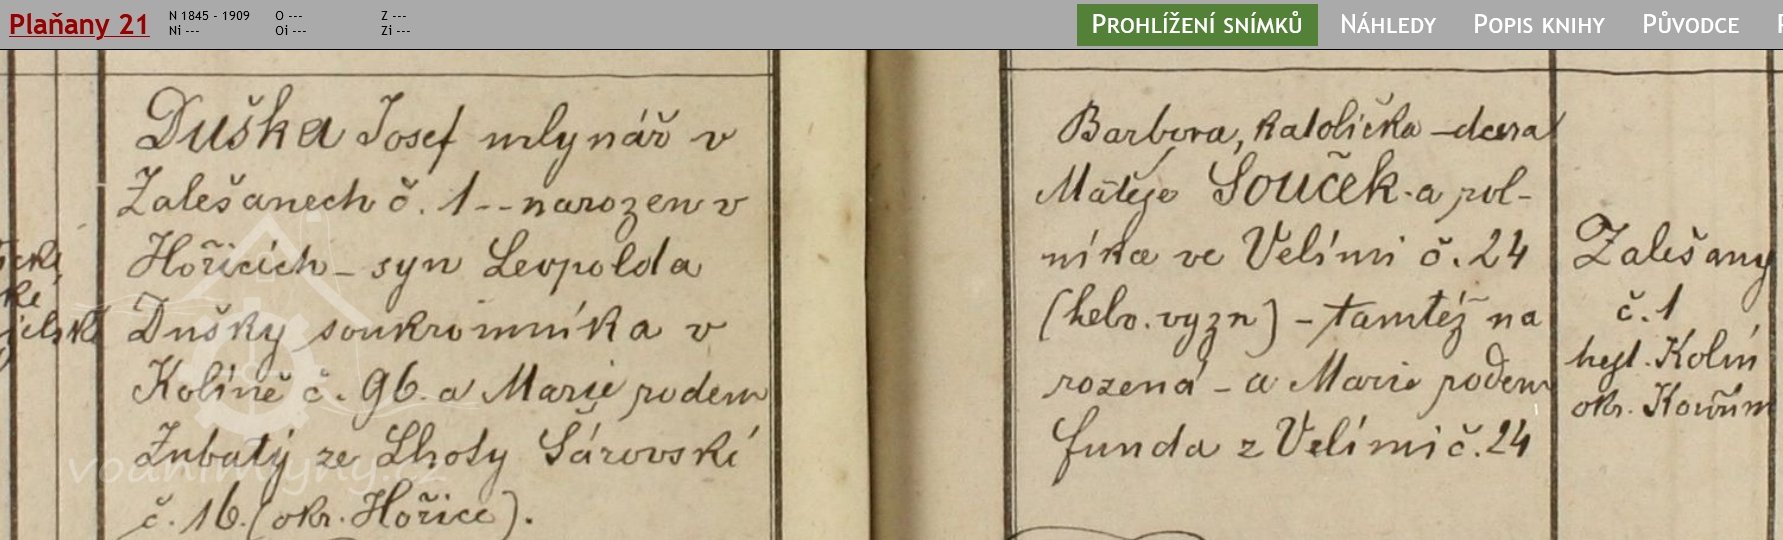 Plaňany 21
N 1845 - 1909 O --- Z ---
Ni --- Oi --- Zi ---
Prohlížení snímků Náhledy Popis knihy Původce
Duška Josef mlynář v
Zalešanech č. 1 -- narozen v
Hořicích - syn Leopolda
Dušky soukromníka v
Kolíně č. 96. a Marie rodem
Zubatý ze Lhoty Šárovské
č. 16. (okr. Hořice).
Barbora, katolička - dcera
Matěje Souček a rol-
níka ve Velimi č. 24
(helv. vyzn) - tamtéž na
rozená - a Marie rodem
Funda z Velimi č. 24
Zalešany
č. 1
hejt. Kolín
okr. Kouřim
vodnimlyny.cz